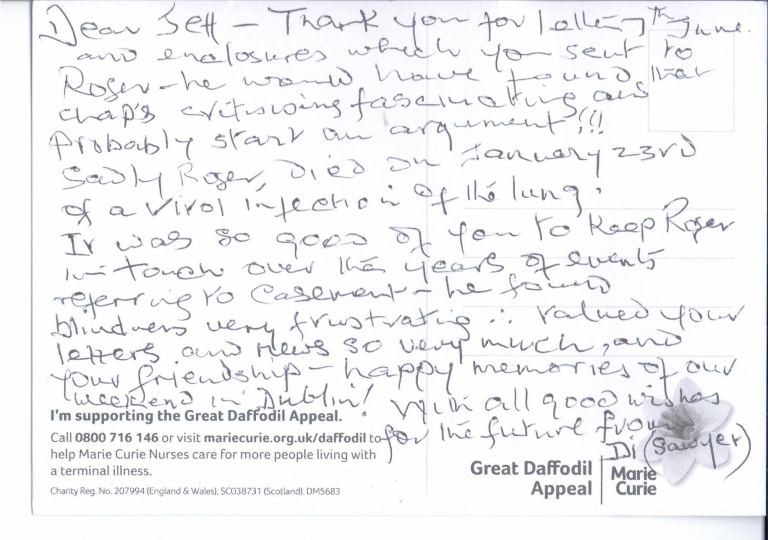 Dear Jeff – Thank you for letter 7th June.
and enclosures which you sent to
Roger – he would have found that
chap's critisising fascinating and
Probably start an argument!!!
Sadly Roger, Died on January 23rd
of a viral infection of the lung.
It was so good of you to keep Roger
in touch over the years of events
referring to Casement – he found
blindness very frustrating ∴ valued your
letters and news so very much, and
your friendship – happy memories of our
weekend in Dublin! With all good wishes
for the future from
Di (Sawyer)
I'm supporting the Great Daffodil Appeal.
Call 0800 716 146 or visit mariecurie.org.uk/daffodil to
help Marie Curie Nurses care for more people living with
a terminal illness.
Charity Reg. No. 207994 (England & Wales), SC038731 (Scotland). DM5683
Great Daffodil
Appeal
Marie
Curie